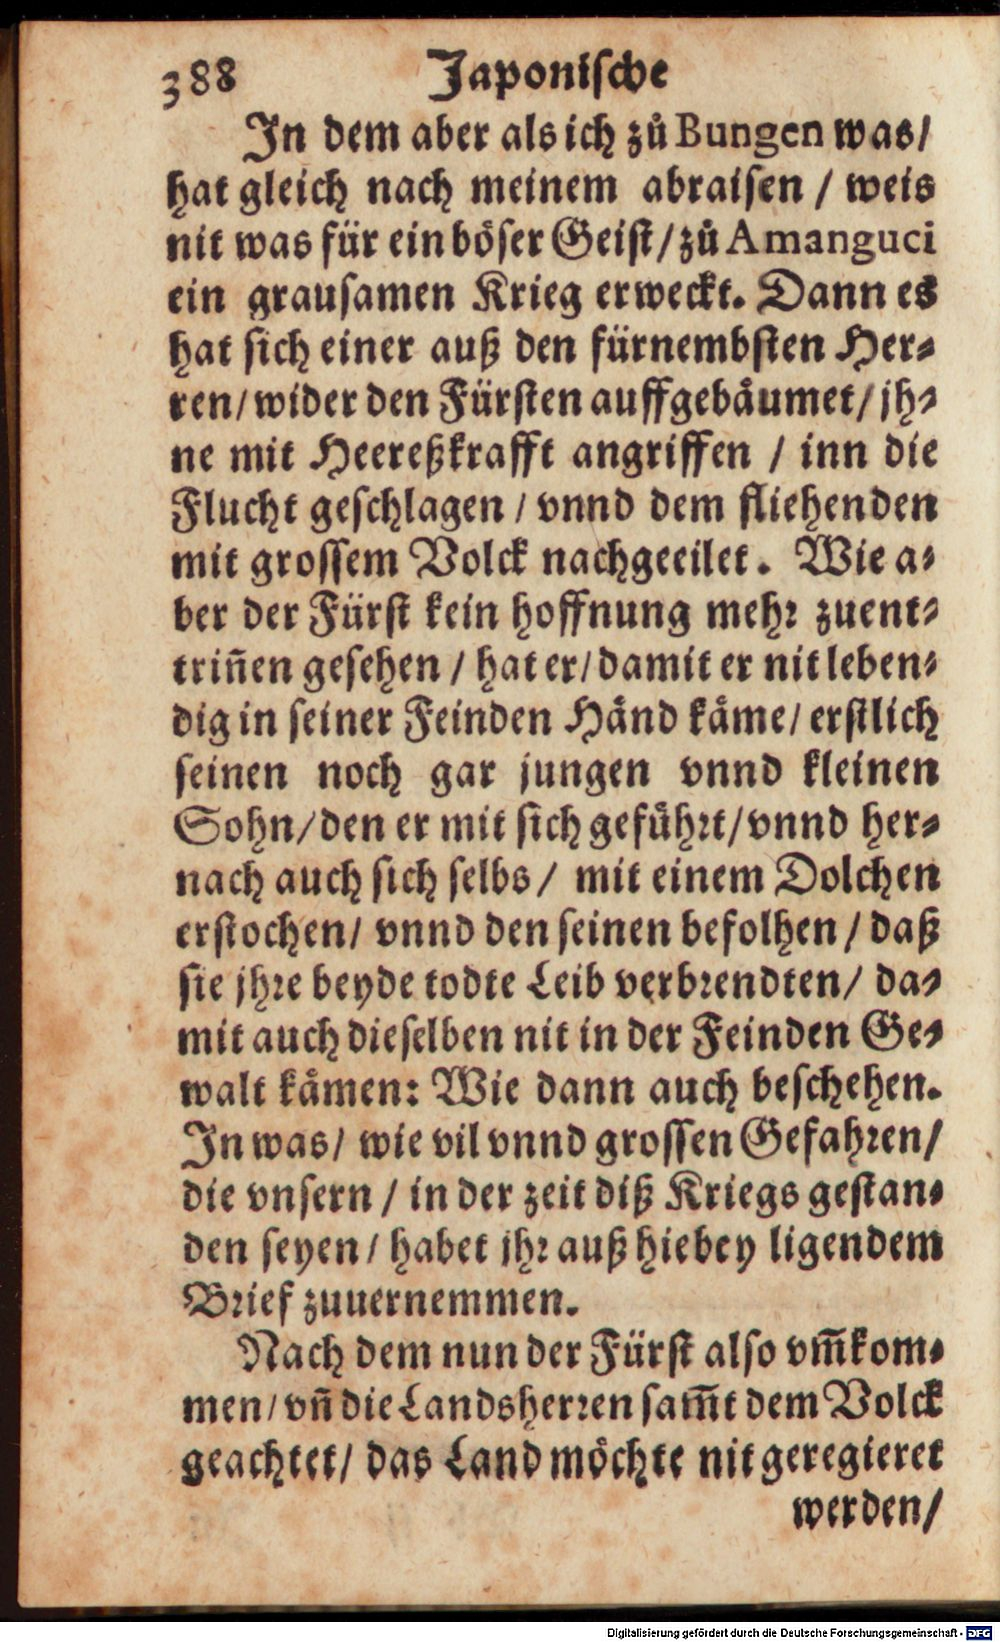 388 Japonische
In dem aber als ich zů Bungen was/
hat gleich nach meinem abraisen / weis
nit was für ein böser Geist/ zů Amanguci
ein grausamen Krieg erweckt. Dann es
hat sich einer auß den fürnembsten Her-
ren/ wider den Fürsten auffgebåumet/ jh-
ne mit Heereßkrafft angriffen / inn die
Flucht geschlagen / vnnd dem fliehenden
mit grossem Volck nachgeeilet. Wie a-
ber der Fürst kein hoffnung mehr zuent-
triñen gesehen / hat er/ damit er nit leben-
dig in seiner Feinden Hånd kåme/ erstlich
seinen noch gar jungen vnnd kleinen
Sohn/ den er mit sich gefůhrt/ vnnd her-
nach auch sich selbs/ mit einem Dolchen
erstochen/ vnnd den seinen befolhen / daß
sie jhre beyde todte Leib verbrendten/ da-
mit auch dieselben nit in der Feinden Ge-
walt kåmen: Wie dann auch beschehen.
In was/ wie vil vnnd grossen Gefahren/
die vnsern / in der zeit diß Kriegs gestan-
den seyen / habet jhr auß hiebey ligendem
Brief zuuernemmen.
Nach dem nun der Fürst also vm̄kom-
men/ vñ die Landsherren sam̄t dem Volck
geachtet/ das Land möchte nit geregieret
werden/
Digitalisierung gefördert durch die Deutsche Forschungsgemeinschaft - DFG